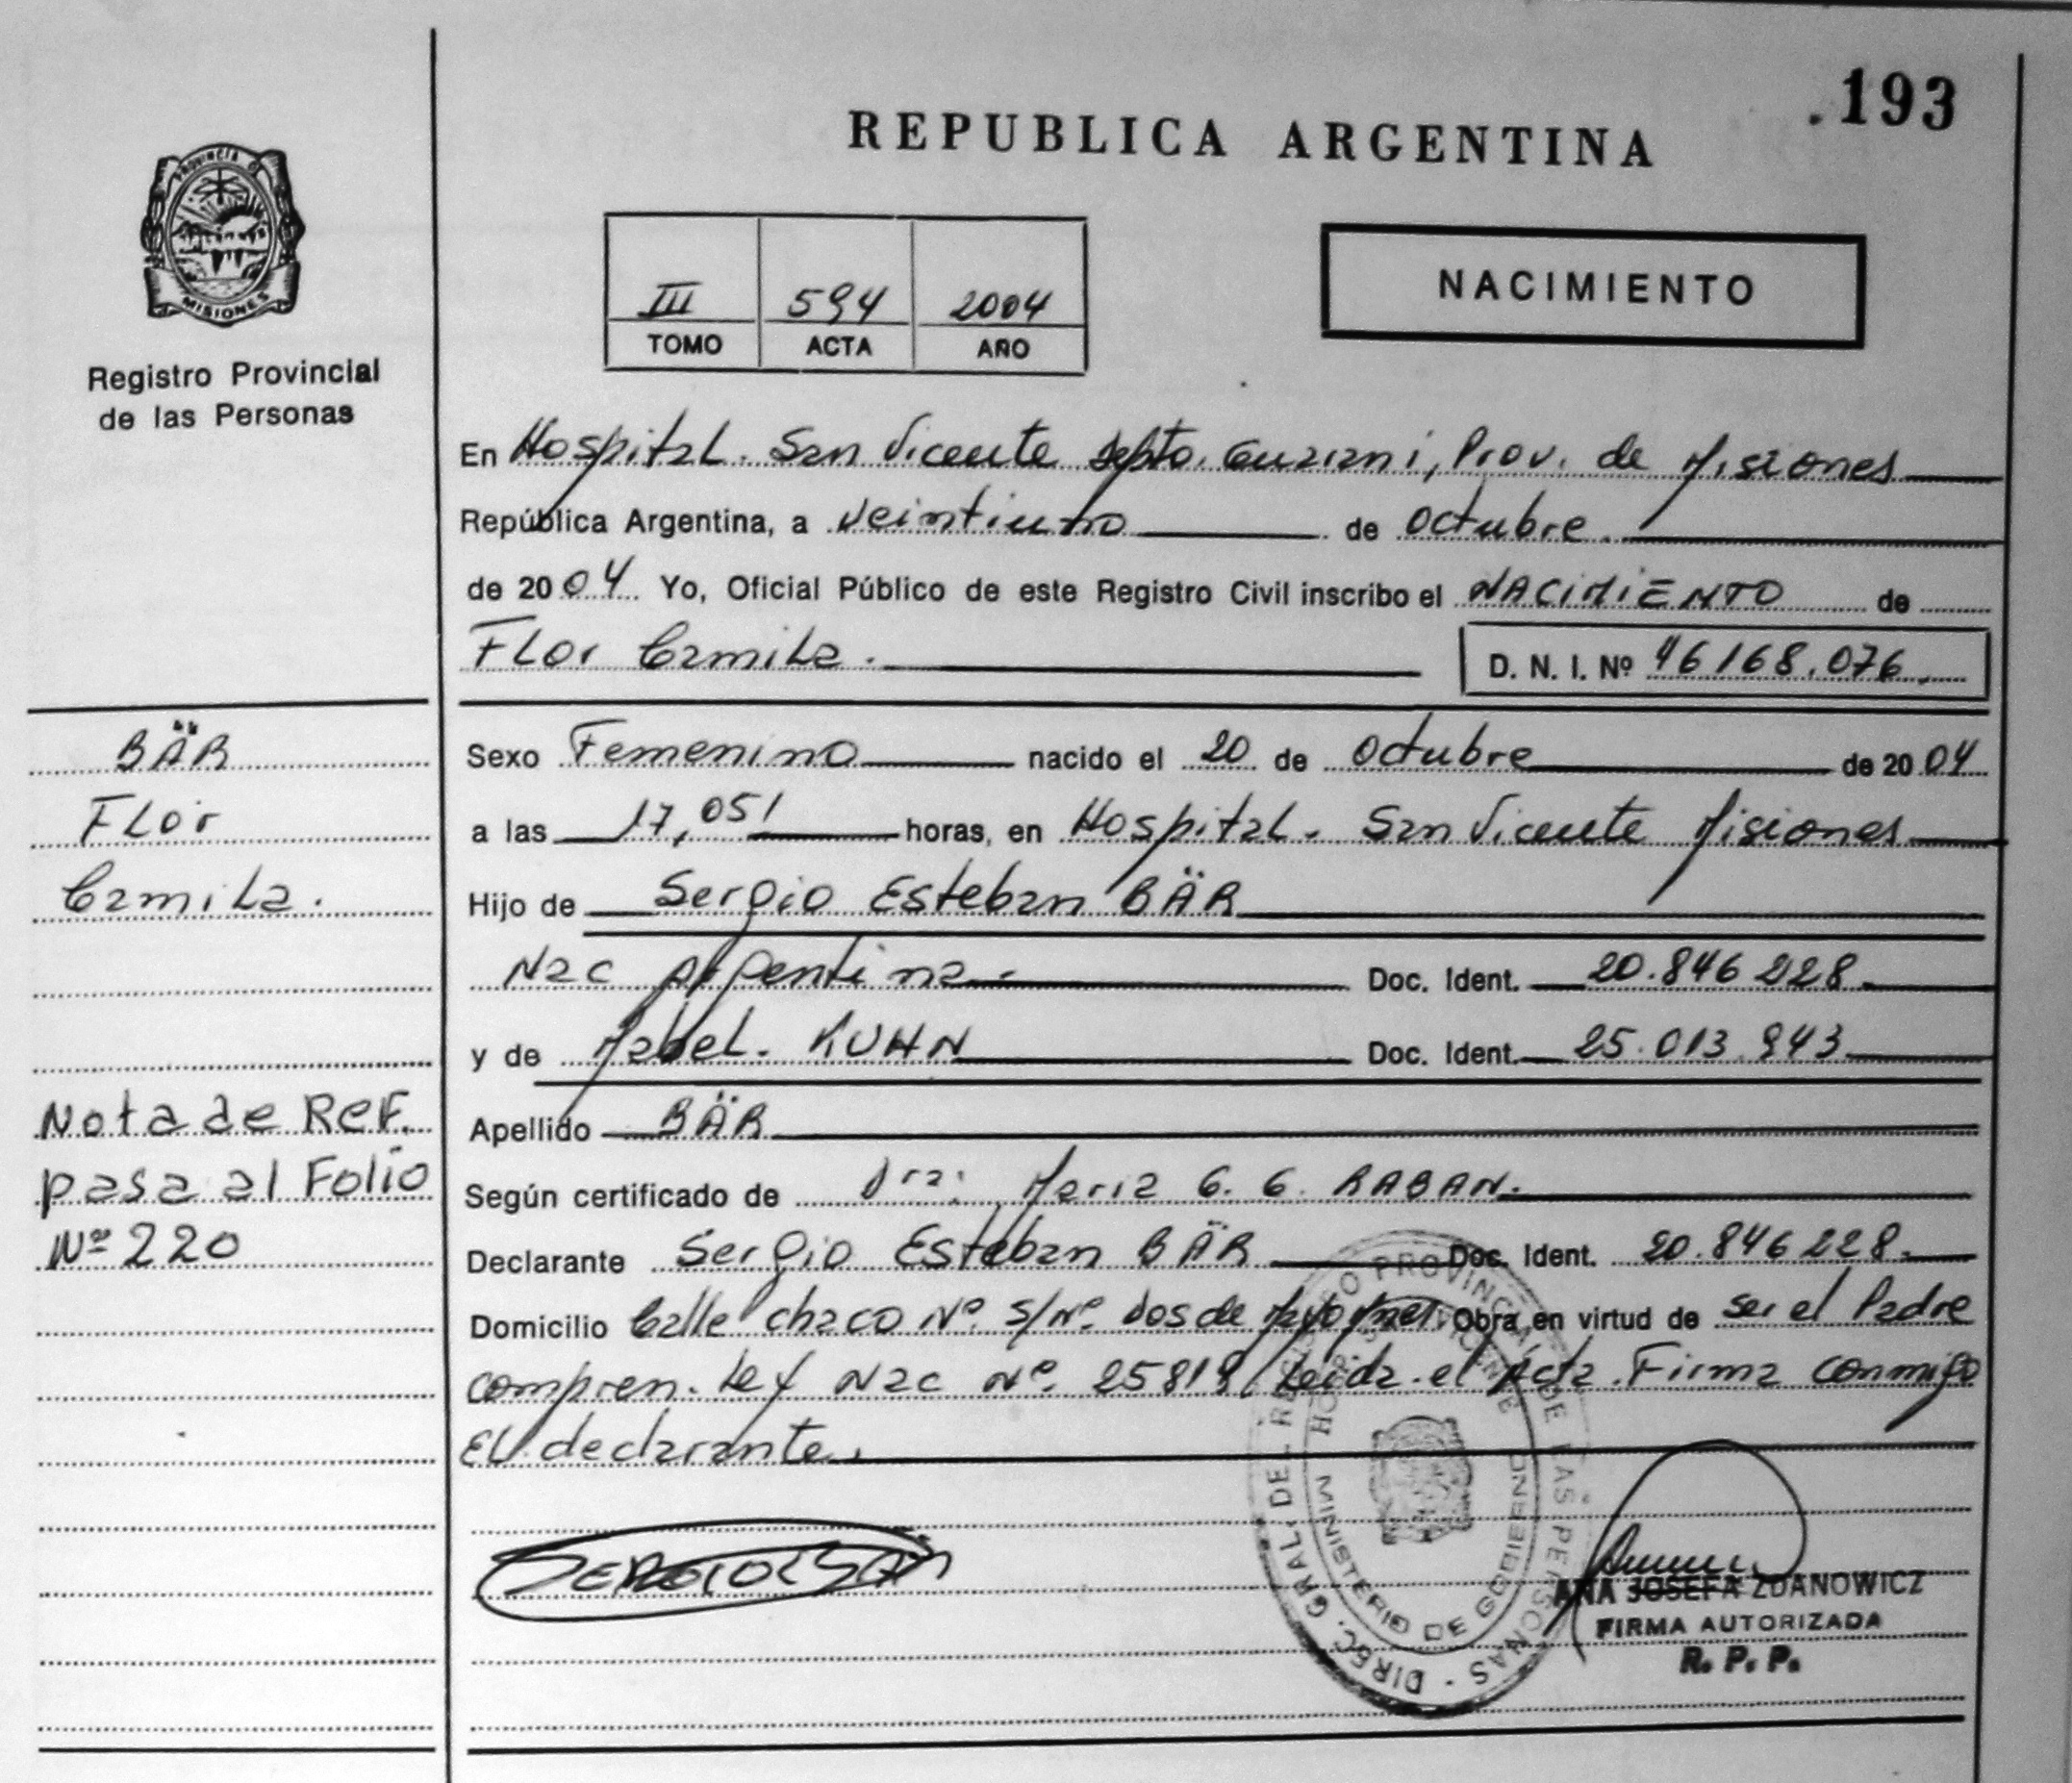 .193
REPUBLICA ARGENTINA
PROVINCIA DE
MISIONES
Registro Provincial
de las Personas
III 594 2004
TOMO ACTA AÑO
NACIMIENTO
En Hospital. San Vicente Depto. Guarani, Prov. de Misiones
República Argentina, a veintiuno de octubre.
de 2004 Yo, Oficial Público de este Registro Civil inscribo el NACIMIENTO de
FLor Camila.
D. N. I. Nº 46168.076.
BÄR
FLor
Camila.
Nota de Ref.
pasa al Folio
Nº 220
Sexo Femenino nacido el 20 de octubre de 2004
a las 17,05 horas, en Hospital. San Vicente Misiones
Hijo de Sergio Esteban BÄR
Nac Argentina Doc. Ident. 20.846 228
y de Mabel. KUHN Doc. Ident. 25.013.943
Apellido BÄR
Según certificado de Dra: Maria G. G. RABAN.
Declarante Sergio Esteban BÄR Doc. Ident. 20.846 228.
Domicilio Calle chaco Nº. S/Nº. Dos de Mayo Mnes. Obra en virtud de ser el Padre
compren. Ley Nac Nº. 25819 Leida el Acta. Firma conmigo
EL declarante.
SERGIO E BÄR
DIREC. GRAL. DE REGISTRO PROVINCIAL DE LAS PERSONAS
MINISTERIO DE GOBIERNO
ANA JOSEFA ZDANOWICZ
FIRMA AUTORIZADA
R. P. P.